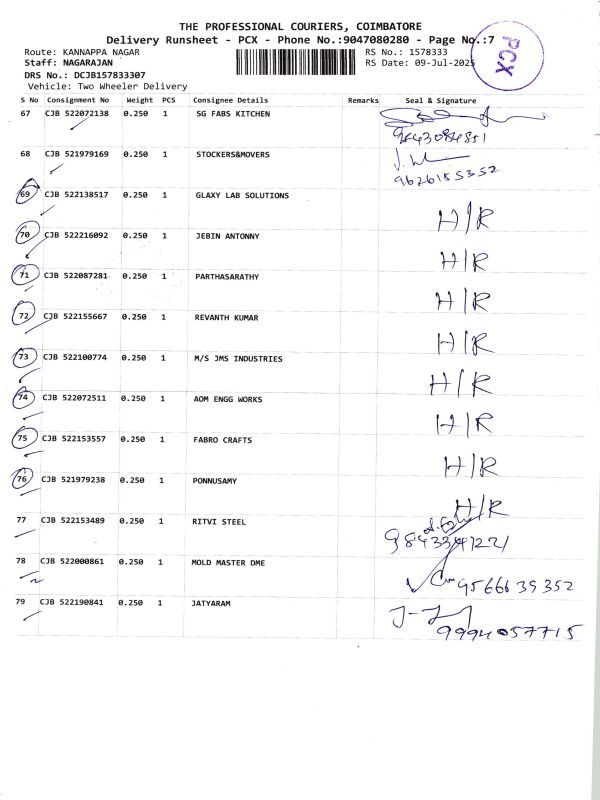 THE PROFESSIONAL COURIERS, COIMBATORE
Delivery Runsheet - PCX - Phone No.:9047080280 - Page No.:7
Route: KANNAPPA NAGAR RS No.: 1578333
Staff: NAGARAJAN RS Date: 09-Jul-2025
PCX
DRS No.: DCJB157833307
Vehicle: Two Wheeler Delivery
S No Consignment No Weight PCS Consignee Details Remarks Seal & Signature
67 CJB 522072138 0.250 1 SG FABS KITCHEN
9843084851
68 CJB 521979169 0.250 1 STOCKERS&MOVERS
9626185352
69 CJB 522138517 0.250 1 GLAXY LAB SOLUTIONS
H/R
70 CJB 522216092 0.250 1 JEBIN ANTONNY
H/R
71 CJB 522087281 0.250 1 PARTHASARATHY
H/R
72 CJB 522155667 0.250 1 REVANTH KUMAR
H/R
73 CJB 522100774 0.250 1 M/S JMS INDUSTRIES
H/R
74 CJB 522072511 0.250 1 AOM ENGG WORKS
H/R
75 CJB 522153557 0.250 1 FABRO CRAFTS
H/R
76 CJB 521979238 0.250 1 PONNUSAMY
H/R
77 CJB 522153489 0.250 1 RITVI STEEL
9843341221
78 CJB 522000861 0.250 1 MOLD MASTER DME
9566639352
79 CJB 522190841 0.250 1 JATYARAM
9994057715